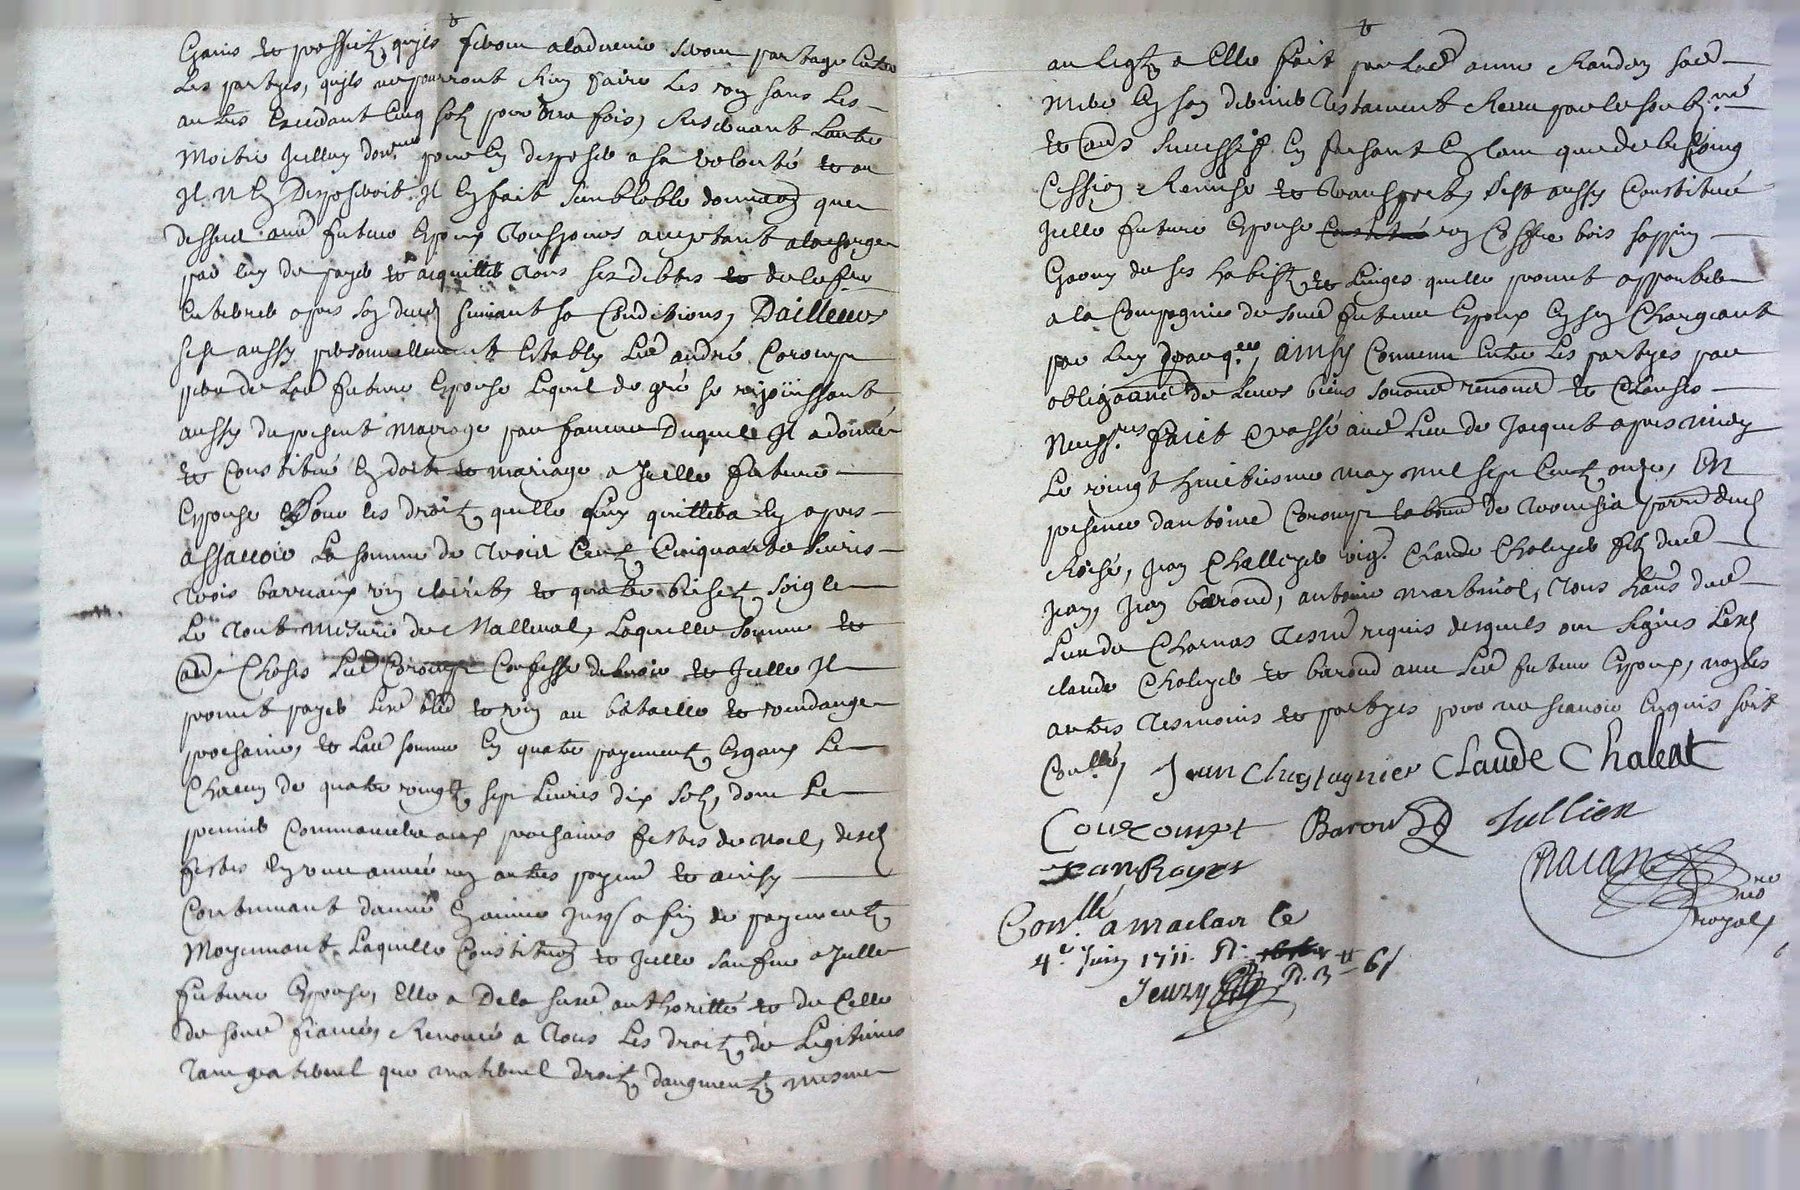 Gains et proffitz qujls feront aladvenir seront partagé Entre
Les partyes, qujls ne pourront Rien faire Les vng sans Les
autres Excédant Cinq solz pour une fois, Reservant Lautre
Moitié Jcelluy don.r pour En disposer a sa volonté et ou
Jl N En Disposeroit Jl En fait semblable donna.on que
dessus aud futeur Espoux Tousjours acceptant alacharge
par luy de payer et acquitter Tous ses debtes et de le faire
Enterrer apres son deces suivant sa Condition, Dailleurs
sest aussy personnellement Estably Led andré Corompt
pere de Lad future Espouse Lequel de gré se rejouissant
aussy du present mariage par faveur Duquel Jl a donné
et Constitué En dot et mariage a Jcelle future
Espouse Pour les droitz quelle luy quittera Cy apres
assavoir La somme de Trois Centz Cinquante Livres
Trois barraux vin claret, et quatre bichetz soigle
Le Tout mesure de Malleval, Laquelle somme et
aud Choses Led Corompt Confesse debvoir et Jcelle Jl
promet payer Led bled et vin au bataille et vendange
prochaine, et Lad somme En quatre payementz Esgaux Le
Chacun de quatre vingtz sept Livres dix solz, dont Le
premier Commancera aux prochaines festes de noel, desd
festes En une année vng autre payem et ainsy
Continuant d'année En année Jusqs a fin de payementz
Moyennant Laquelle Constitu.on et Jcelle sauf a Jcelle
future Espouse, Elle a De la susd authoritté et de Celle
de sond fiancé, Renoncé a Tous Les droitz de Legitimes
Tant paternel que maternel droitz daugmentz mesme
au Legtz a Elle fait par Lad anne Randon sad
mere En son dernier Testament Receu par le soub.né
et aud successif En faisant En tant que de besoing
Cession Remise et Transport, sest aussy Constitué
Jcelle future Espouse Constitué vng Coffre bois sappin
Garny de ses habitz et Linges quelle promet apporter
a la Compagnie de sond futeur Espoux En sen Chargeant
par luy Jcaeq.er, ainsy Convenu Entre Les partyes par
obliga.on de Leurs biens soumo renond et Clauses
Necess.res faict et passé aud Lieu de Jacquet apres midy
Le vingt huictiesme may mil sept Centz onze, En
presence dantoine Corompt de Tromesia parr dud
Roisé, Jean Challeyer vig.n Claude Chaleyer filz dud
Jean, Jean baroud, antoine martinol, Tous habns dud
Lieu de Charnas Tesmo requis desquels ont signés Lesd
claude Chaleyer et baroud avec Led futeur Espoux, non les
autres Tesmoins et partyes pour ne scavoir Enquis soit
Con.llé, Jean Chastagnier Claude Chaleat
Courompt Baroud Jullien
Jean Royer
Con.llé a maclair le
4.e Juin 1711.
Royal